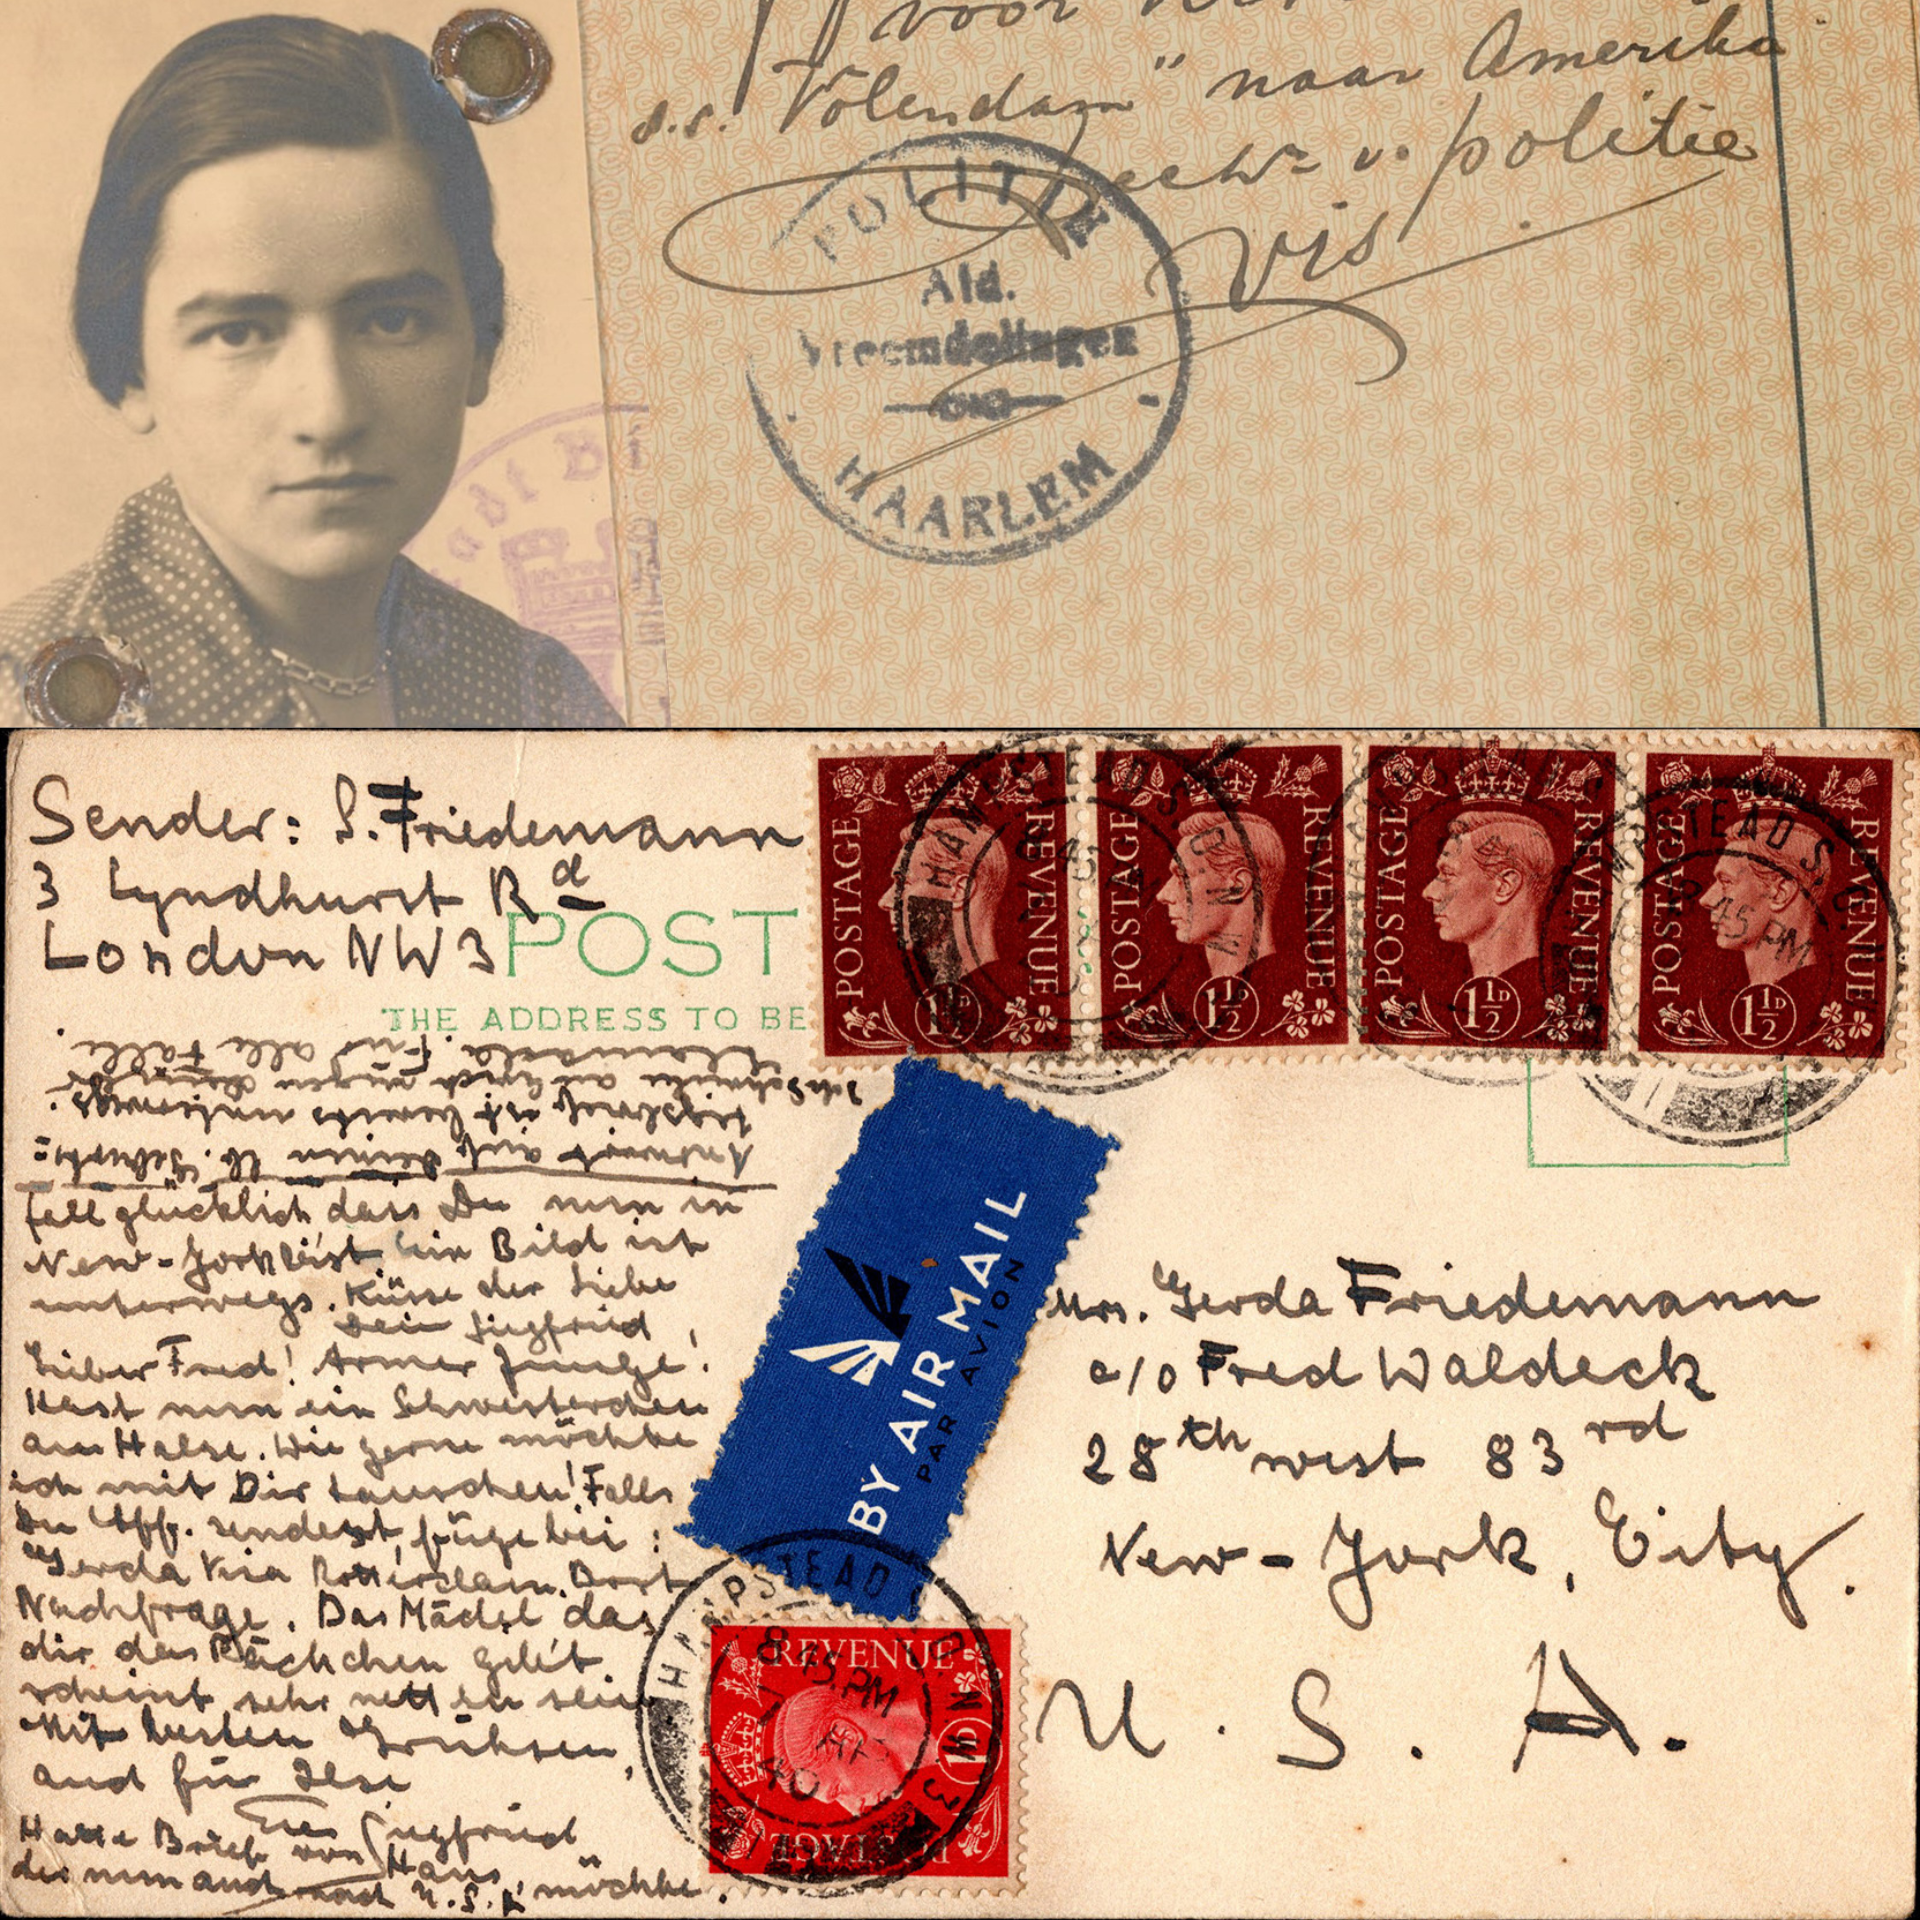 voor
s.s. Volendam" naar Amerika
v. politie
Vis
POLITIE
Afd.
Vreemdelingen
HAARLEM
Stadt B
Sender: S. Friedemann
3 Lyndhurst Rd
London NW3
POST
THE ADDRESS TO BE
POSTAGE REVENUE 1½D
POSTAGE REVENUE 1½D
POSTAGE REVENUE 1½D
POSTAGE REVENUE 1½D
HAMPSTEAD S.O. N.W.
8 45 PM
Antwort auf deinen lb.
fall glücklich dass Du nun in
New-York bist. Ein Bild ist
unterwegs. Küsse der Liebe
Dein Siegfried
Lieber Fred! Armer Junge!
Hast nun ein Schwesterchen
am Halse. Wie gerne möchte
ich mit Dir tauschen! Falls
Du Aff. sendest, füge bei:
Gerda via Rotterdam. Dort
Nachfrage. Das Mädel das
dir das Päckchen gibt
scheint sehr nett zu sein
Mit besten Grüssen,
auch für Ilse
Euer Siegfried
Hatte Brief von Hans,
der nun auch nach U.S.A. möchte.
BY AIR MAIL
PAR AVION
Mrs. Gerda Friedemann
c/o Fred Waldeck
28th west 83rd
New-York, City.
U. S. A.
HAMPSTEAD S.O. N.W.3
8 45 PM
40
REVENUE
POSTAGE
1D